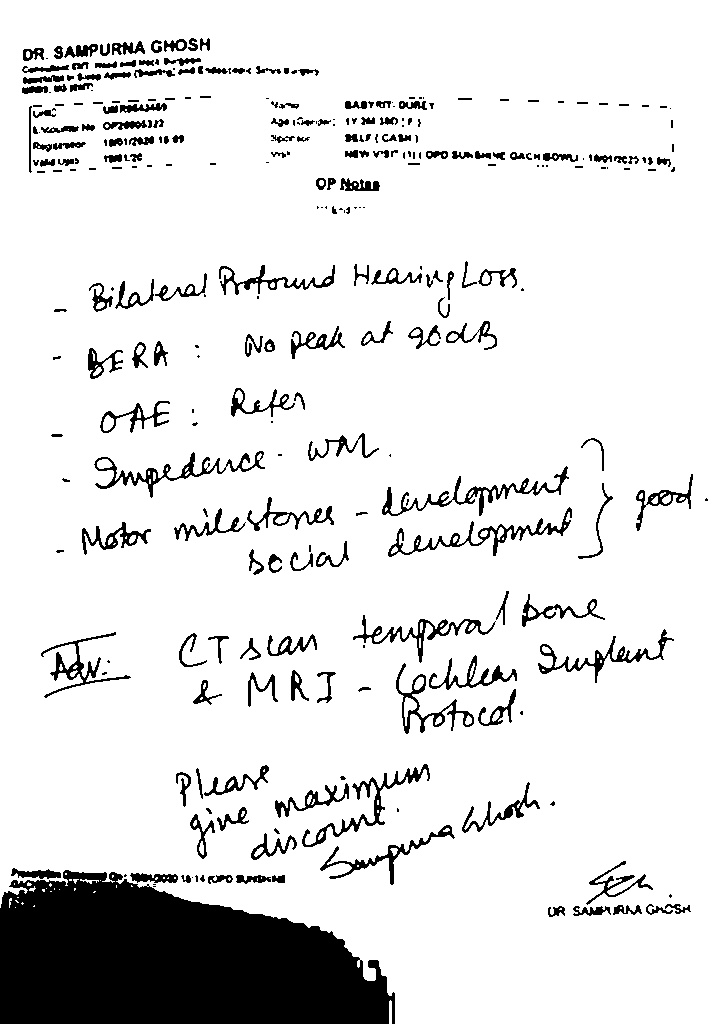 DR. SAMPURNA GHOSH
Consultant ENT, Head and Neck Surgeon
Specialist in Sleep Apnea (Snoring) and Endoscopic Sinus Surgery
MBBS, MS (ENT)
Name : BABY RITI DUBEY
Encounter No : OP20005322 Age (Gender) : 1Y 2M 38D ( F )
Registration : 18/01/2020 15:09 Sponsor : SELF ( CASH )
Valid Upto : 19/01/20 Visit : NEW VISIT (1) ( OPD SUNSHINE GACHIBOWLI - 18/01/2020 15:09)
OP Notes
*** End ***
- Bilateral Profound Hearing Loss.
- BERA : No peak at 90dB
- OAE : Refer
- Impedence - WNL.
- Motor milestones - development
social development } good.
Adv: CT scan temporal bone
& MRI - Cochlear Implant
Protocol.
Please
give maximum
discount.
Sampurna Ghosh.
DR. SAMPURNA GHOSH